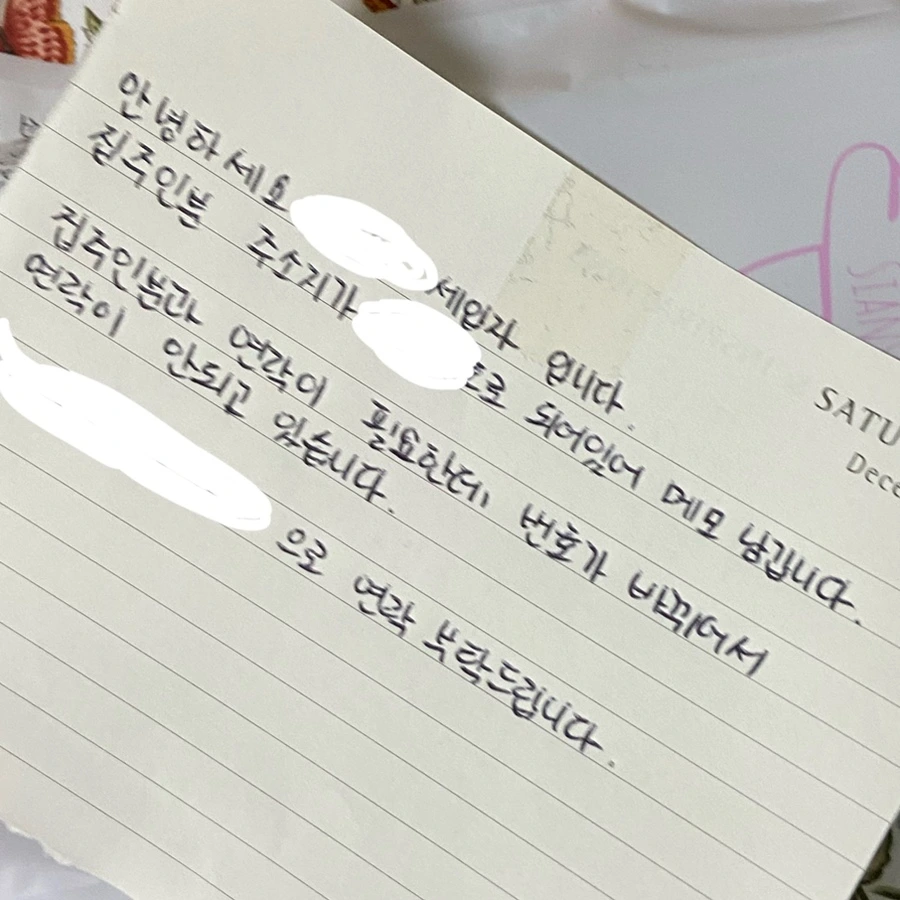 안녕하세요 세입자 입니다.
집주인분 주소지가 호로 되어있어 메모 남깁니다.
집주인분과 연락이 필요한데, 번호가 바뀌어서
연락이 안되고 있습니다.
으로 연락 부탁드립니다.
SATU
Dece
SEAN